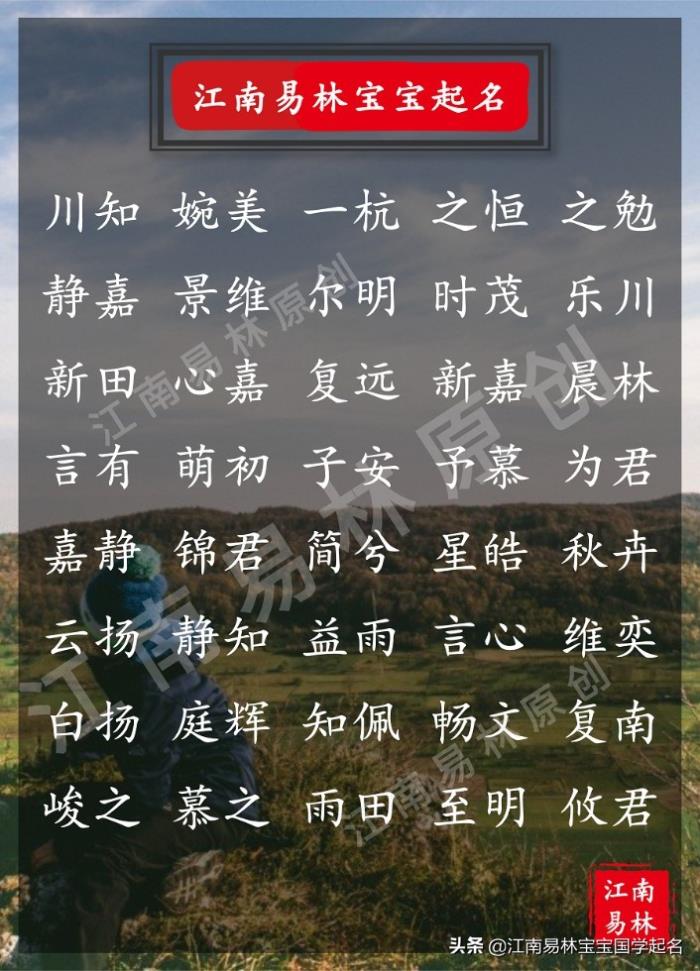 江南易林宝宝起名
川知 婉美 一杭 之恒 之勉
静嘉 景维 尔明 时茂 乐川
新田 心嘉 复远 新嘉 晨林
言有 萌初 子安 予慕 为君
嘉静 锦君 简兮 星皓 秋卉
云扬 静知 益雨 言心 维奕
白扬 庭辉 知佩 畅文 复南
峻之 慕之 雨田 至明 攸君
江南易林原创
江南易林原创
江南易林原创
江南
易林
头条 @江南易林宝宝国学起名